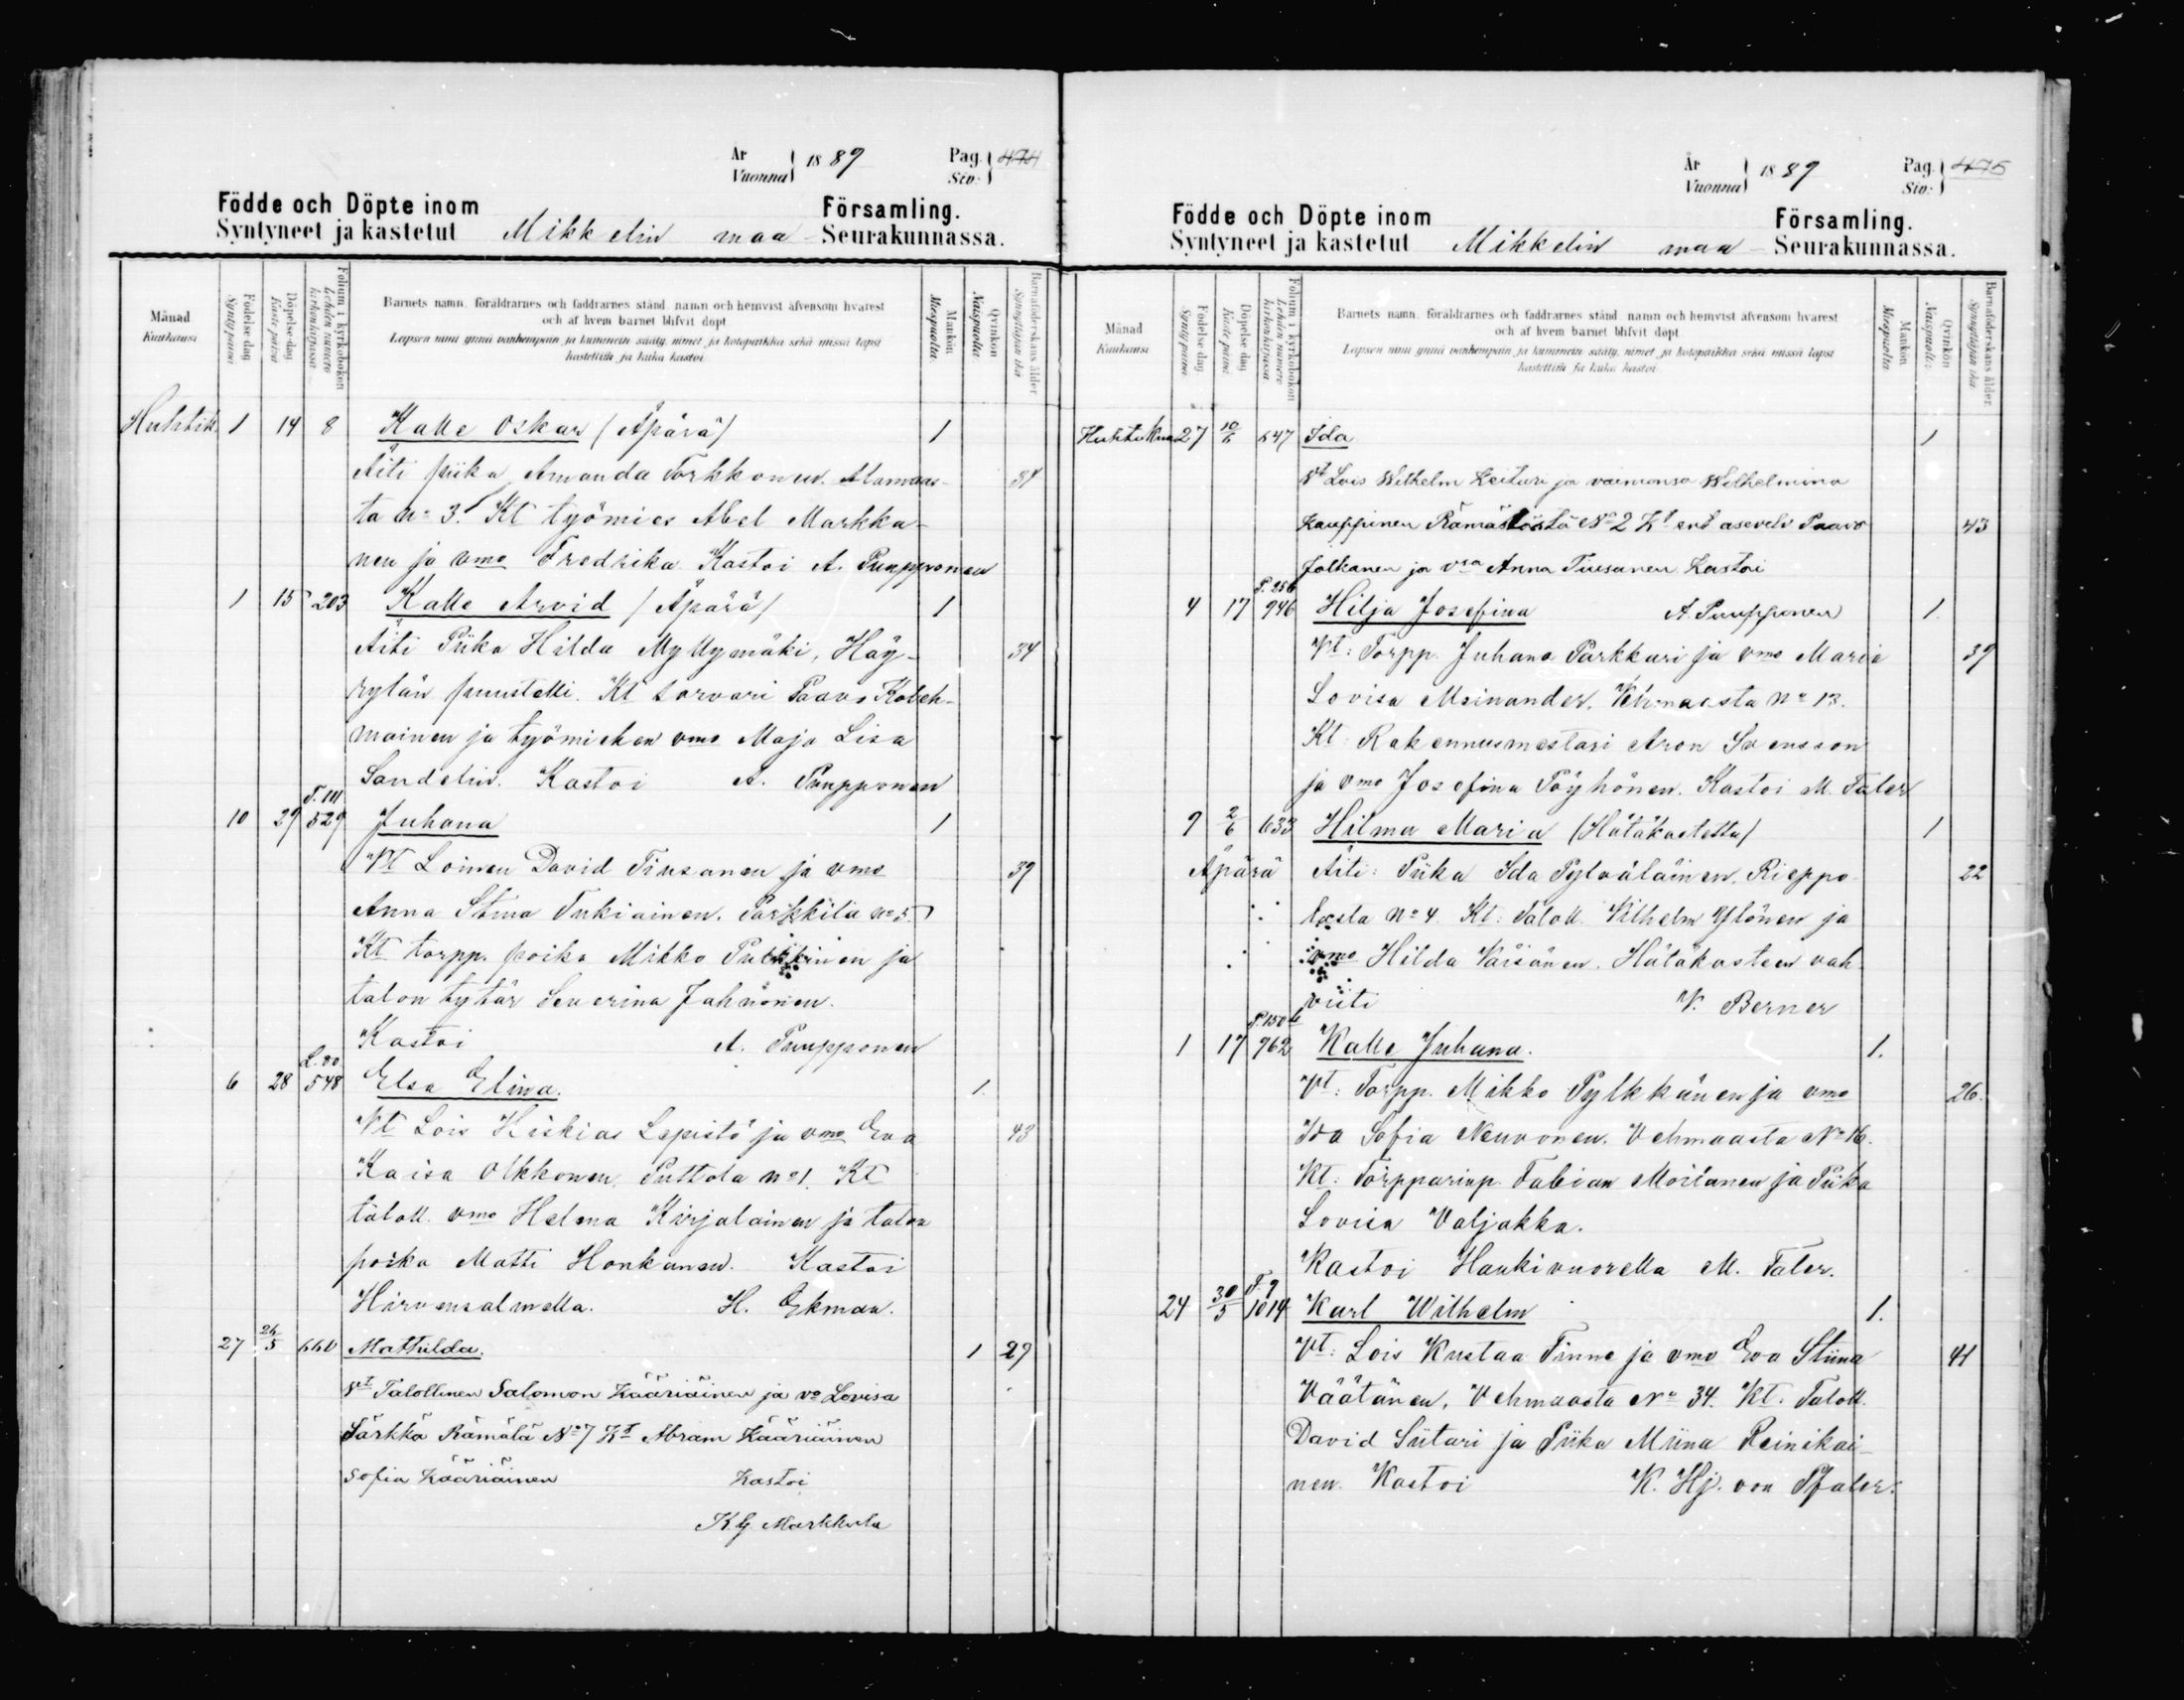 År
Vuonna 1889
Pag.
Siv: 474
Födde och Döpte inom
Syntyneet ja kastetut Mikkelin maa
Församling.
Seurakunnassa.
Månad
Kuukausi
Födelse dag
Synty päivä
Döpelse-dag
Kaste päivä
Folium i kyrkoboken
Lehden numero
kirkonkirjassa
Barnets namn, föräldrarnes och faddrarnes stånd, namn och hemvist äfvensom hvarest
och af hvem barnet blifvit döpt
Lapsen nimi ynnä vanhempain ja kummein sääty, nimet ja kotopaikka sekä missä lapsi
kastettiin ja kuka kastoi.
Mankön
Miespuolta
Qvinkön
Naispuolta
Barnaföderskans ålder
Synnyttäjän ikä
Huhtik. 1 14 8 Kalle Oskar (Äpärä) 1
Äiti piika Amanda Torkkonen. Alamaas-
ta No 3. Kt työmies Abel Markka-
nen ja vmo Fredrika. Kastoi A. Puupponen
1 15 203 Kalle Arvid (Äpärä) 1
Äiti Piika Hilda Myllymäki, Häy- 34
rylän puustelli. Kt torvari Paavo Koleh-
mainen ja työmiehen vmo Maja Lisa
Sandelin. Kastoi A. Puupponen
T. 111
10 29 529 Juhana 1
Vt Loinen David Tiusanen ja vmo 39
Anna Stina Tukiainen. Parkkila No 5.
Kt torpp. poika Mikko Pulkkinen ja
talon tytär Severina Juhanonen.
Kastoi A. Puupponen
L. 80
6 28 548 Elsa Elina. 1.
Vt Lois Hiskias Lepistö ja vmo Eva 43
Kaisa Olkkonen. Puttola No 1. Kt
taloll. vmo Helena Kirjalainen ja talon
poika Matti Honkanen. Kastoi
Hirvensalmella. H. Ekman.
27 26/5 660 Mathilda. 1 29
Vt Talollinen Salomon Kääriäinen ja vo Lovisa
Särkkä Rämälä No 7 Kt Abram Kääriäinen
Sofia Kääriäinen Kastoi
K. G. Markkula
År
Vuonna 1889
Pag.
Siv: 475
Födde och Döpte inom
Syntyneet ja kastetut Mikkelin maa
Församling.
Seurakunnassa.
Månad
Kuukausi
Födelse dag
Synty päivä
Döpelse dag
Kaste päivä
Folium i kyrkoboken
Lehden numero
kirkonkirjassa
Barnets namn, föräldrarnes och faddrarnes stånd, namn och hemvist äfvensom hvarest
och af hvem barnet blifvit döpt.
Lapsen nimi ynnä vanhempain ja kummein sääty, nimet ja kotopaikka sekä missä lapsi
kastettiin ja kuka kastoi.
Mankön
Miespuolta
Qvinkön
Naispuolta
Barnaföderskans ålder.
Synnyttäjän ikä
Huhtikuu 27 10/6 647 Ida 1
Vt Lois Wilhelm Keituri ja vaimonsa Wilhelmina
Kauppinen Rämäslöstä No 2 Kt ent asevelv Paavo 43
Jolkanen ja vsa Anna Tiusanen Kastoi
T. 256
4 17 946 Hilja Josefina A. Puupponen 1.
Vt: Torpp. Juhana Parkkari ja vmo Maria 39
Lovisa Meinander. Vehmaasta No 13.
Kt Rakennusmestari Aron Svensson
ja vmo Josefina Pöyhönen. Kastoi M. Taler
9 2/6 633 Hilma Maria (Hätäkastettu) 1
Äpärä Äiti: Piika Ida Pylväläinen. Rieppo 22
lasta No 4. Kt: Taloll. Vilhelm Ylönen ja
vmo Hilda Väisänen. Hätäkasteen vah
visti V. Berner
T. 150
1 17 962 Kalle Juhana. 1.
Vt: Torpp. Mikko Pylkkänen ja vmo 26.
Ida Sofia Neuvonen. Vehmaasta No 16.
Kt: Torpparinp. Fabian Moilanen ja Piika
Lovisa Valjakka.
Kastoi Haukivuorella M. Taler.
T. 9
24 30/5 1014 Karl Wilhelm 1.
Vt: Lois Kustaa Tinne ja vmo Eva Stiina 41
Väätänen, Vehmaasta No 34. Kt. Taloll.
David Siitari ja Piika Miina Reinikai-
nen. Kastoi K. Hj. von Pfaler.